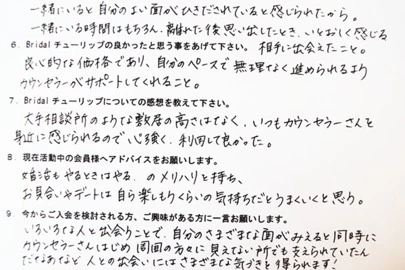 一緒にいると自分のよい面がひきだされていると感じられたから。
一緒にいる時間はもちろん、離れて後思い出したとき、いとおしく感じる
6. Bridal チューリップの良かったと思う事をあげて下さい。 相手に出会えたこと。
良心的な価格であり、自分のペースで無理なく進められるよう
カウンセラーがサポートしてくれること。
7. Bridal チューリップについての感想を教えて下さい。
大手相談所のような敷居の高さはなく、いつもカウンセラーさんを
身近に感じられるので心強く、利用して良かった。
8. 現在活動中の会員様へアドバイスをお願いします。
婚活もやるときはやる、のメリハリと持ち、
お見合いやデートは自ら楽しもうくらいの気持ちだとうまくいくと思う。
9 今からご入会を検討される方、ご興味がある方に一言お願いします。
いろいろな人と出会うことで、自分のさまざまな面がみえると同時に
カウンセラーさんはじめ 周囲の方々に見えない所でも支えられていたん
だなあなど 人との出会いにはさまざまな気づきと得られます！